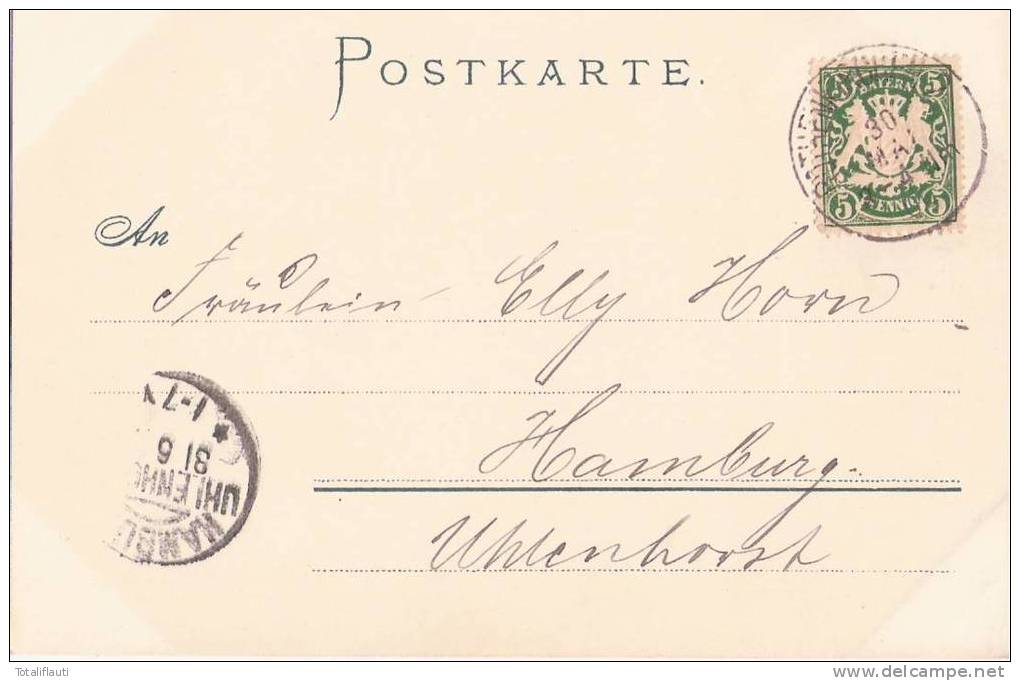 POSTKARTE.
5 BAYERN 5
30
MAI
5 PFENNIG 5
An
Fräulein Elly Horn
Hamburg.
Uhlenhorst
1-7
31 5
UHLENHO
HAMBU
Totaliflauti
www.delcampe.net